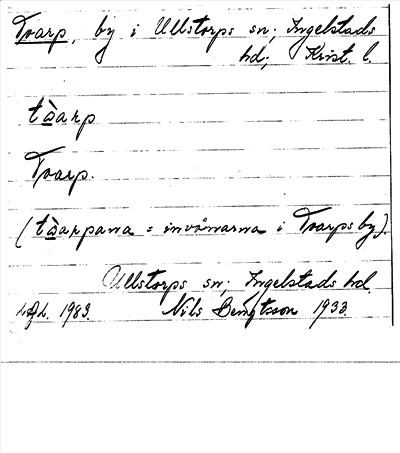 Tvarp, by i Ullstorps sn; Ingelstads
hd; Krist. l.
tàarp
Tvarp.
(tàarpana = invånarna i Tvarps by).
Ullstorps sn; Ingelstads hd.
1983. Nils Bengtsson 1933.